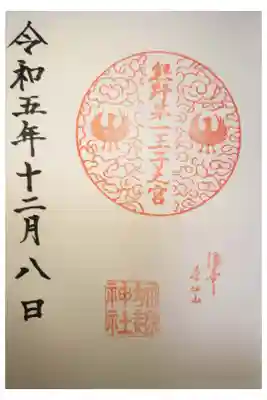 熊野第一王子之宮
堀越
神社
令和五年十二月八日